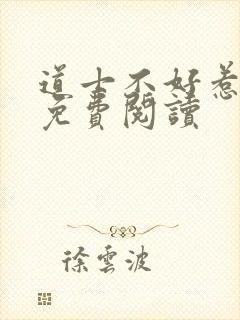 道士不好惹
免費閱讀
徐雲波